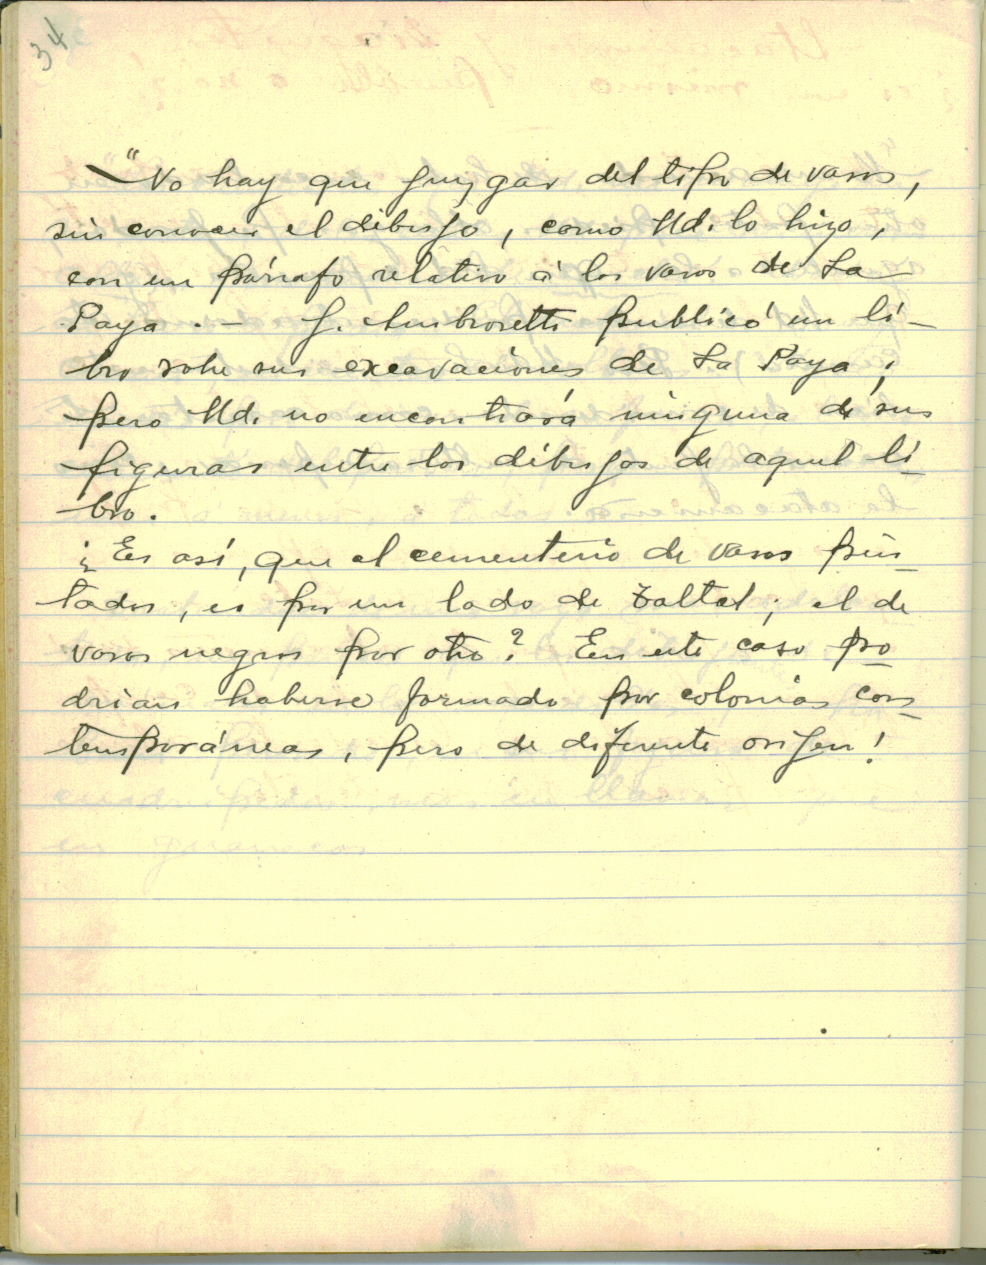 34
"No hay que juzgar del tipo de vasos,
sin conocer el dibujo, como Ud. lo hizo,
con un párrafo relativo á los vasos de La
Paya.— J. Ambrosetti publicó un li-
bro sobre sus excavaciones de La Paya;
pero Ud. no encontrará ninguna de sus
figuras entre los dibujos de aquel li-
bro.
¿Es así, que el cementerio de vasos pin-
tados, es por un lado de Taltal; el de
vasos negros por otro? En este caso po-
drian haberse formado por colonias con-
temporáneas, pero de diferente orijen!